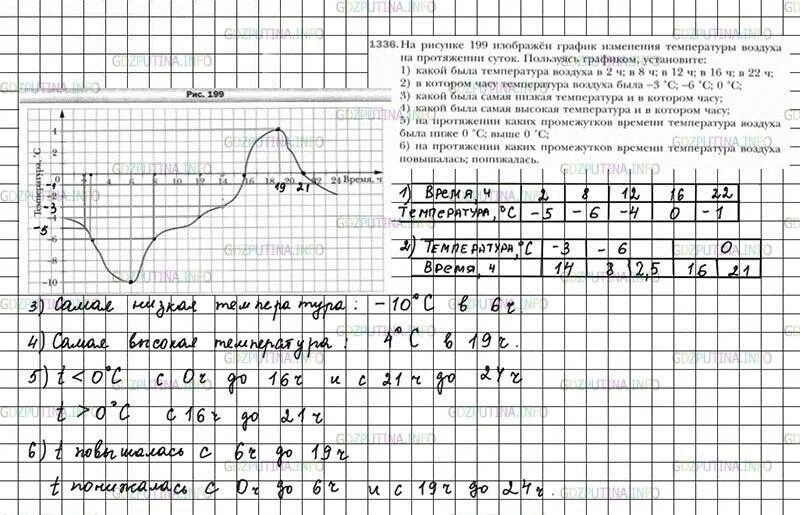 1336. На рисунке 199 изображён график изменения температуры воздуха
на протяжении суток. Пользуясь графиком, установите:
1) какой была температура воздуха в 2 ч; в 8 ч; в 12 ч; в 16 ч; в 22 ч;
2) в котором часу температура воздуха была –3 °C; –6 °C; 0 °C;
3) какой была самая низкая температура и в котором часу;
4) какой была самая высокая температура и в котором часу;
5) на протяжении каких промежутков времени температура воздуха
была ниже 0 °C; выше 0 °C;
6) на протяжении каких промежутков времени температура воздуха
повышалась; понижалась.
Рис. 199
Температура, °C
4
2
2 4 6 8 10 12 14 16 18 20 22 24 Время, ч
19 21
-1
-3
-5
-6
-8
-10
1) Время, ч 2 8 12 16 22
Температура, °C -5 -6 -4 0 -1
2) Температура, °C -3 -6 0
Время, ч 14 8 2,5 16 21
3) Самая низкая температура: -10°C в 6ч
4) Самая высокая температура: 4°C в 19ч.
5) t < 0°C с 0ч до 16ч и с 21ч до 24ч
t > 0°C с 16ч до 21ч
6) t повышалась с 6ч до 19ч
t понижалась с 0ч до 6ч и с 19ч до 24ч.
GDZPUTINA.INFO